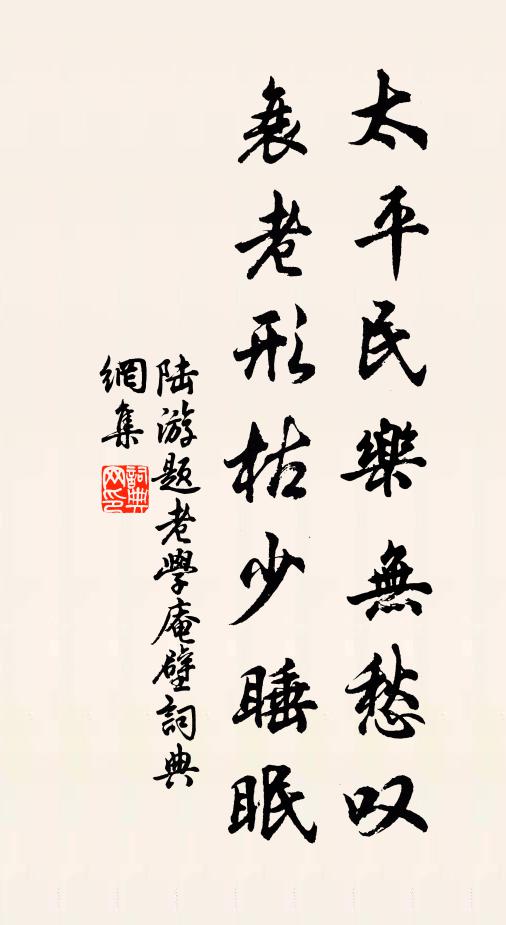 太平民樂無愁叹
衰老形枯少睡眠
陆游題老學庵壁詞典
網集
詞典
网印